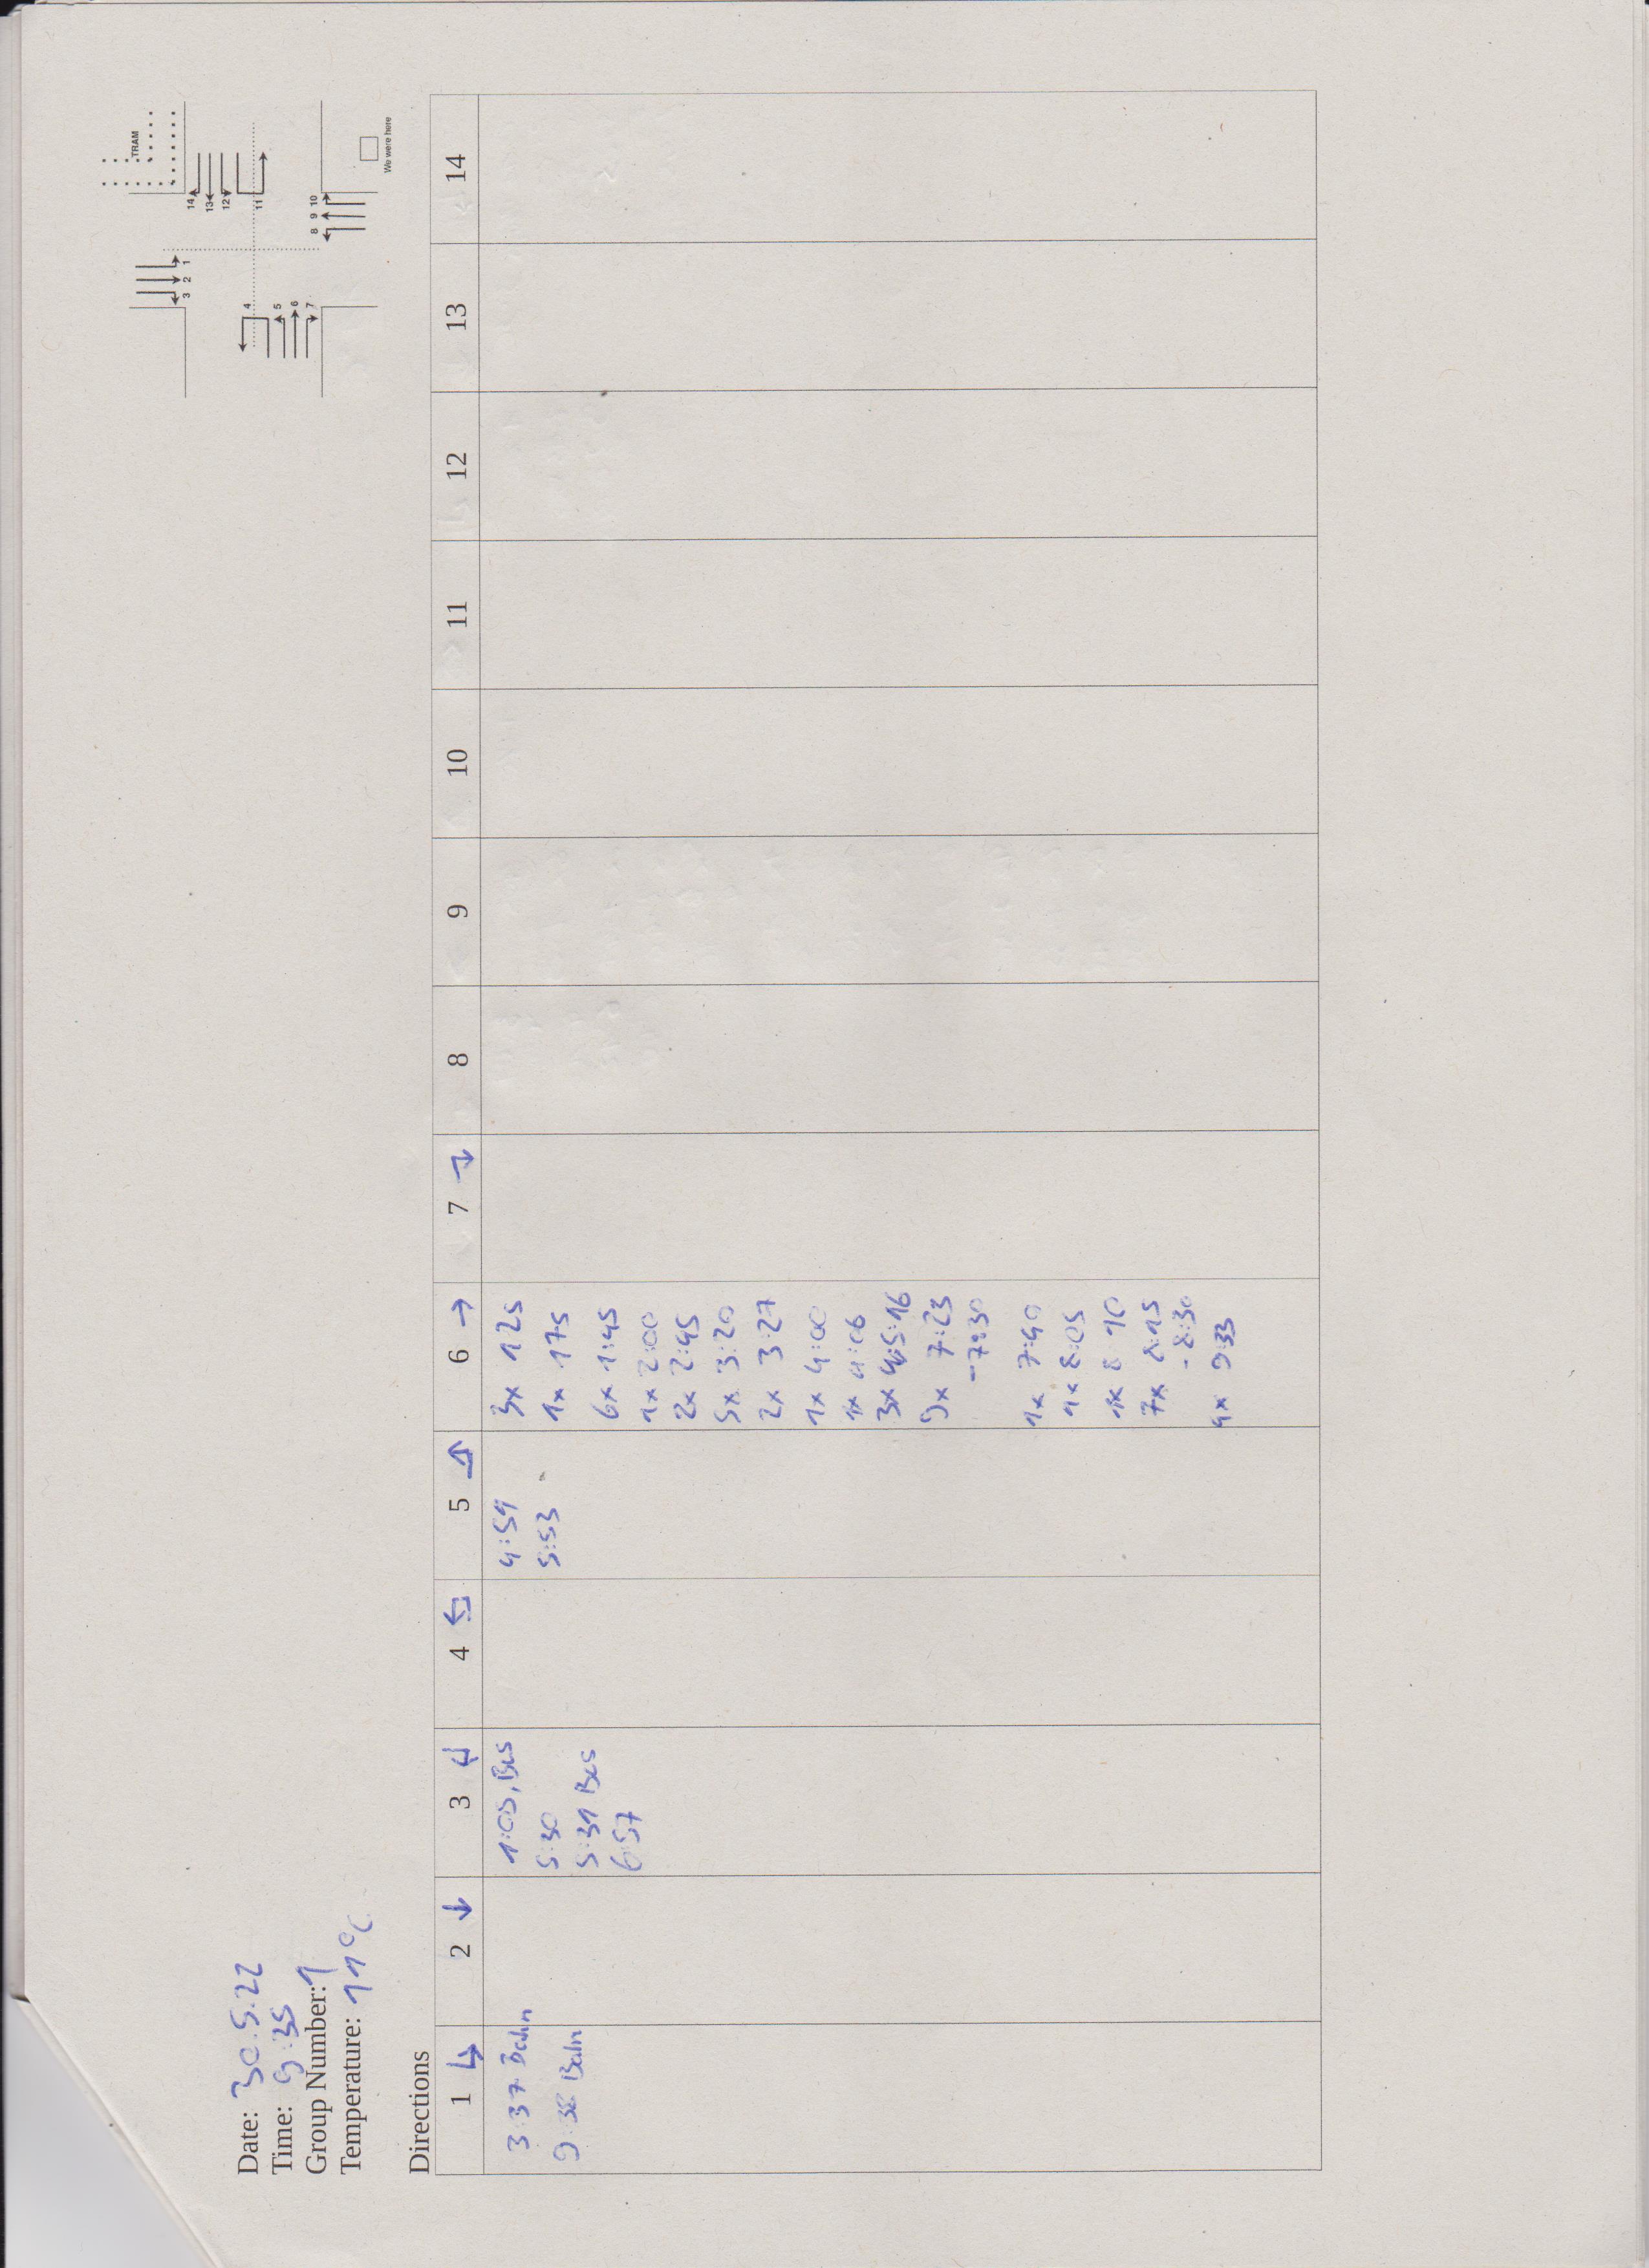 TRAM
3 2 1
14
13
12
4
11
5
6
7
8 9 10
We were here
Date: 30.5.22
Time: 9:35
Group Number: 1
Temperature: 11°C
Directions
1 ↳ 2 ↓ 3 ↲ 4 5 6 → 7 8 9 10 11 12 13 14
3:37 Bahn
9:38 Bahn
1:05, Bus
5:30
5:31 Bus
6:57
4:59
5:53
3x 12s
1x 17s
6x 1:45
1x 2:00
2x 2:45
5x 3:20
2x 3:27
1x 4:00
1x 4:06
3x 5:16
9x 7:23
-7:30
1x 7:40
1x 8:05
1x 8 10
7x 8:15
- 8:30
4x 9:33